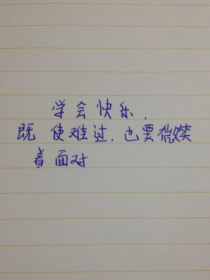 学会快乐，
既使难过，也要微笑
着面对